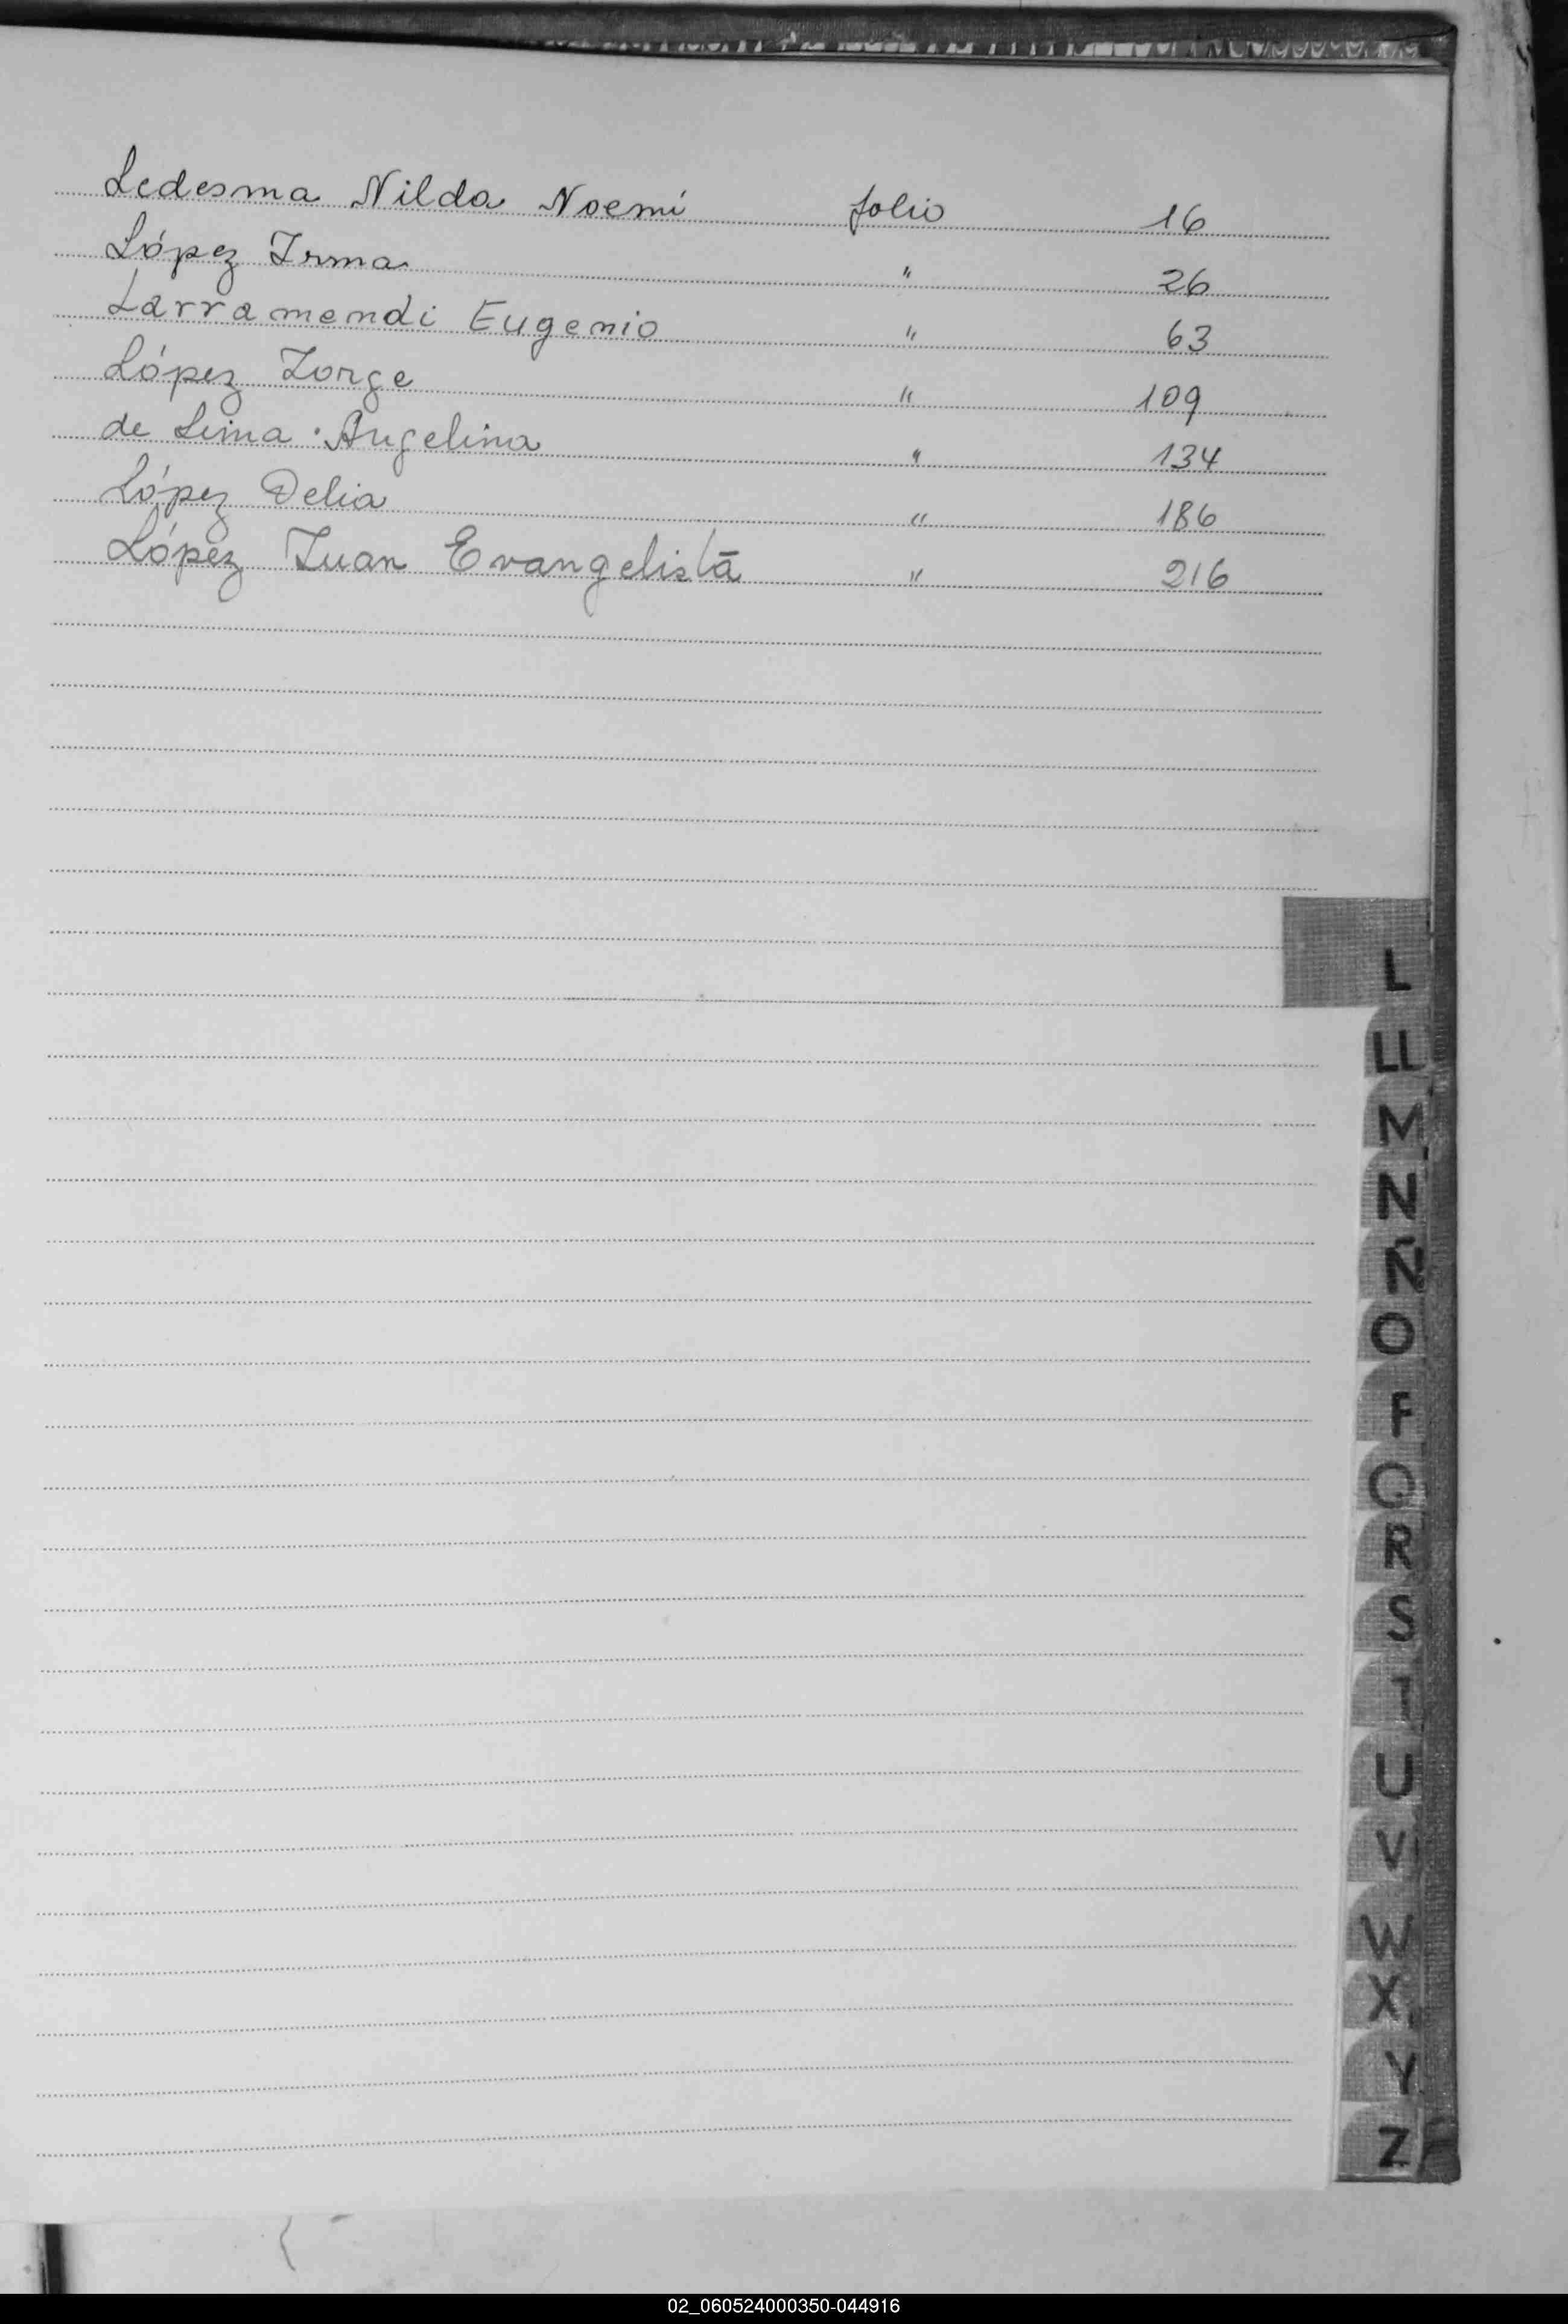 Ledesma Nilda Noemí folio 16
López Irma " 26
Larramendi Eugenio " 63
López Jorge " 109
de Lima Angelina " 134
López Delia " 186
López Juan Evangelista " 216
L
LL
M
N
Ñ
O
P
Q
R
S
T
U
V
W
X
Y
Z
02_060524000350-044916